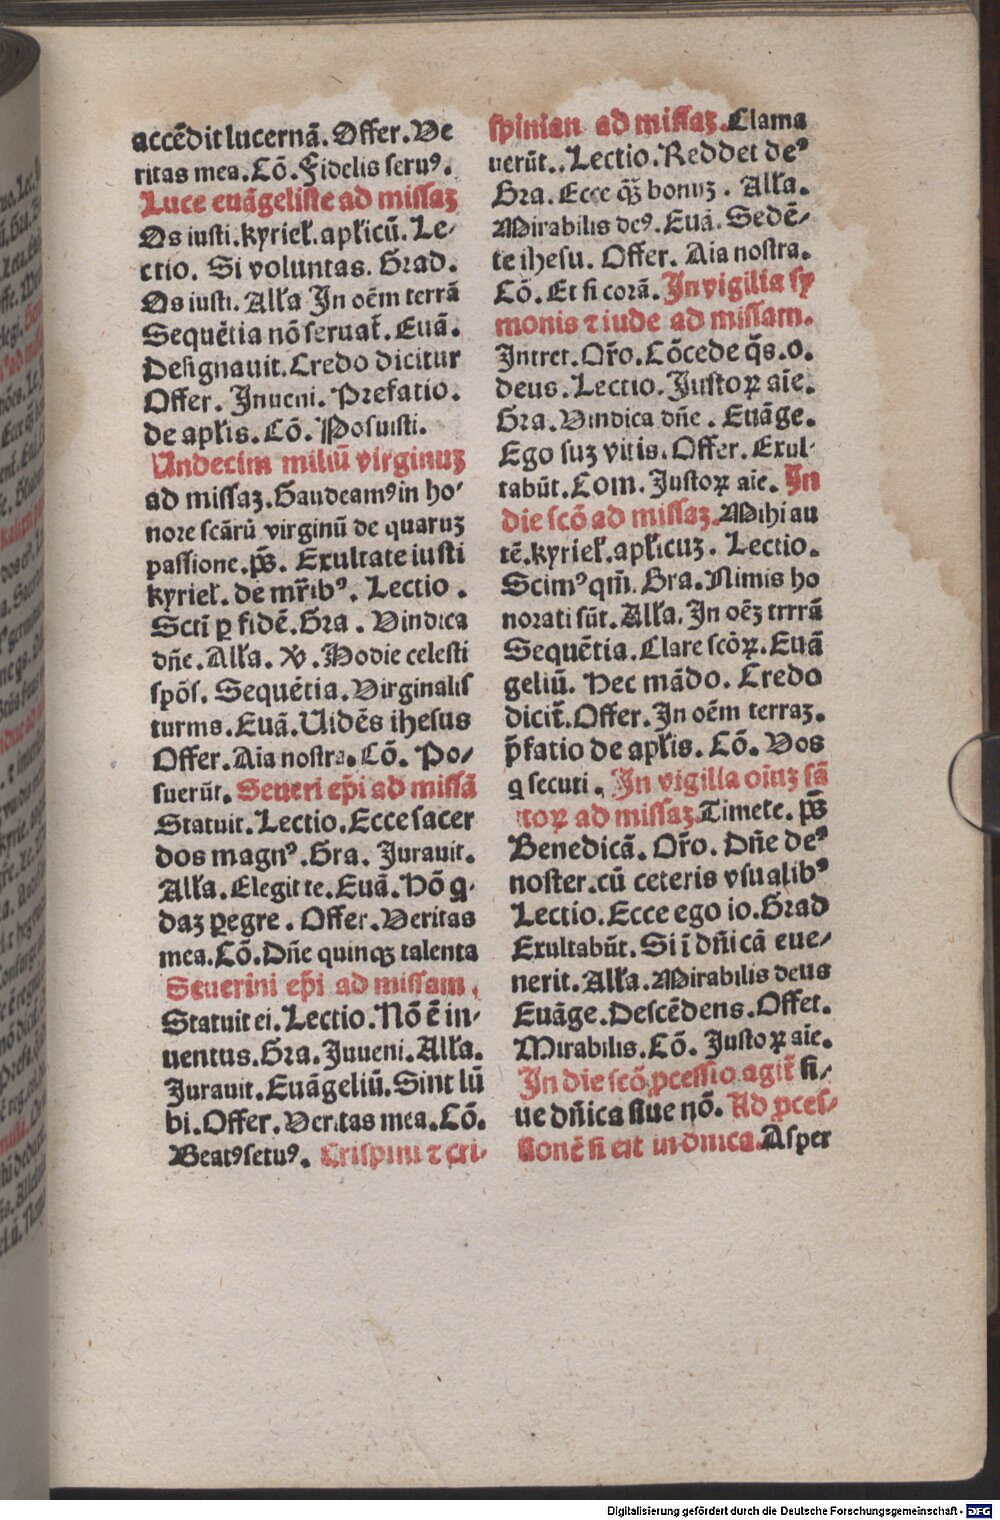 accēdit lucernā. Offer. Ve
ritas mea. Cō. Fidelis seruꝰ.
Luce euāgeliste ad missaꝫ
Os iusti. kyriel̄. apl̄icū. Le⸗
ctio. Si voluntas. Grad.
Os iusti. Al̄la In oēm terrā
Sequētia nō seruat̄. Euā.
Designauit. Credo dicitur
Offer. Inueni. Prefatio.
de apl̄is. Cō. Posuisti.
Undecim miliū virginuꝫ
ad missaꝫ. Gaudeamꝰ in ho⸗
nore scārū virginū de quaruꝫ
passione. pš. Exultate iusti
kyriel̄. de mr̄ibꝰ. Lectio.
Scti ꝑ fidē. Gra. Vindica
dn̄e. Al̄la. xv. Hodie celesti
spōs. Sequētia. Virginalis
turme. Euā. Uidēs ihesus
Offer. Aia nostra. Cō. Po⸗
suerūt. Seueri ep̄i ad missā
Statuit. Lectio. Ecce sacer
dos magnꝰ. Gra. Iurauit.
Al̄la. Elegit te. Euā. Hō q⸗
daꝫ ꝑegre. Offer. Veritas
mea. Cō. Dn̄e quinqꝫ talenta
Seuerini ep̄i ad missam.
Statuit ei. Lectio. Nō ē in⸗
uentus. Gra. Iuueni. Al̄la.
Iurauit. Euāgeliū. Sint lū
bi. Offer. Veritas mea. Cō.
Beatꝰ seruꝰ. Crispini ⁊ cri⸗
spinian ad missaꝫ. Clama
uerūt. Lectio. Reddet deꝰ
Gra. Ecce q̄ꝫ bonuꝫ. Al̄la.
Mirabilis deꝰ. Euā. Sedē⸗
te ihesu. Offer. Aia nostra.
Cō. Et si corā. In vigilia sy
monis ⁊ iude ad missam.
Intret. Or̄o. Cōcede q̄s. o.
deus. Lectio. Iustoꝝ aīe.
Gra. Vindica dn̄e. Euāge.
Ego suꝫ vitis. Offer. Exul⸗
tabūt. Com. Iustoꝝ aie. In
die scō ad missaꝫ. Mihi au
tē. kyriel̄. apl̄icuꝫ. Lectio.
Scimꝰ qm̄. Gra. Nimis ho
norati sūt. Al̄la. In oēꝫ trrrā
Sequētia. Clare scōꝝ. Euā
geliū. Hec mādo. Credo
dicit̄. Offer. In oēm terraꝫ.
p̄fatio de apl̄is. Cō. Vos
q secuti. In vigilia oīuꝫ sā
ctoꝝ ad missaꝫ Timete. pš
Benedicā. Or̄o. Dn̄e deꝰ
noster. cū ceteris vsualibꝰ
Lectio. Ecce ego io. Grad
Exultabūt. Si ī dn̄icā eue⸗
nerit. Al̄la. Mirabilis deus
Euāge. Descēdens. Offet.
Mirabilis. Cō. Iustoꝝ aīe.
In die scō ꝓcessio agit̄ si⸗
ue dn̄ica siue nō. Ad ꝓces⸗
sionē si erit in dn̄ica. Asper
Digitalisierung gefördert durch die Deutsche Forschungsgemeinschaft - DFG